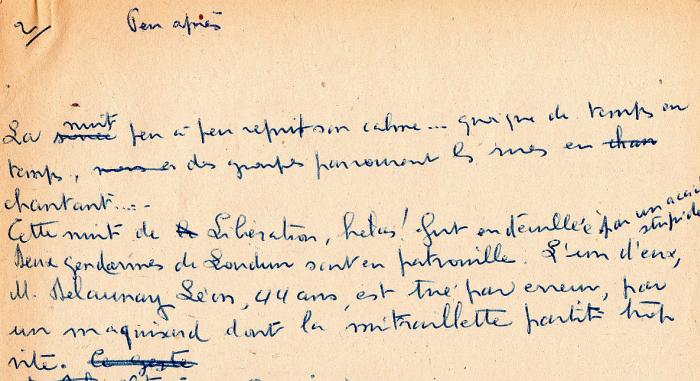 2/ Peu après
La nuit peu à peu reprit son calme... quoique de temps en
temps, des groupes parcourent les rues en chan
chantant....
Cette nuit de la Libération, hélas! fut endeuillée par un accid
stupide
Deux gendarmes de Loudun sont en patrouille. L'un d'eux,
M. Delaunay Léon, 44 ans, est tué par erreur, par
un maquisard dont la mitraillette partit trop
vite. Ce geste